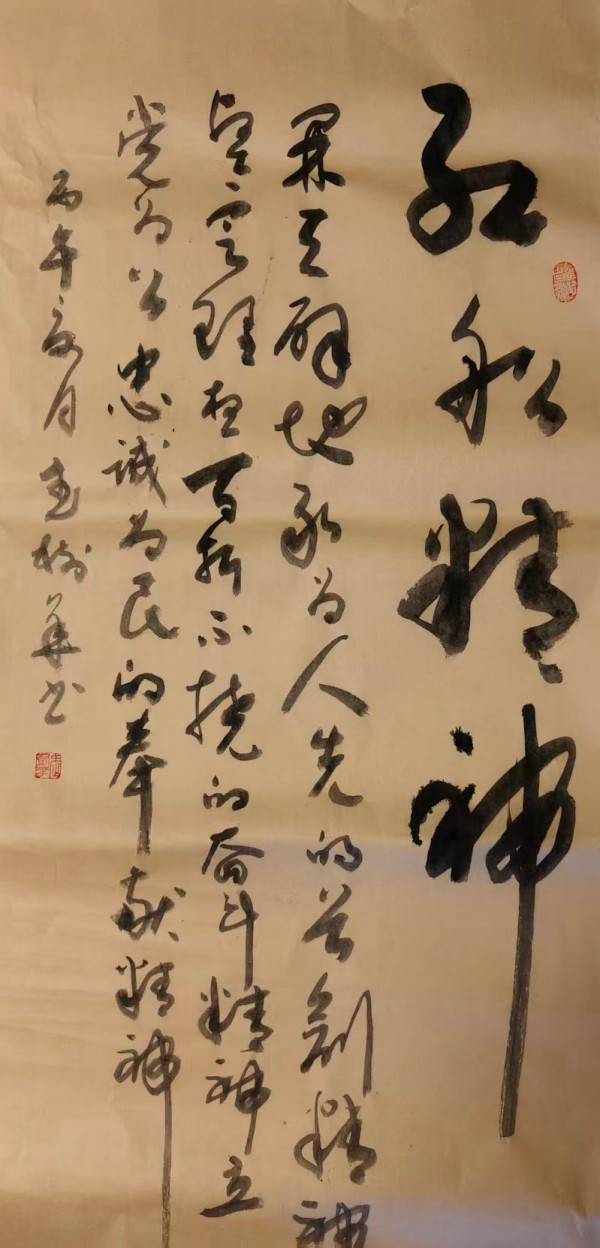 红船精神
開天辟地敢为人先的首創精神
堅定理想百折不撓的奋斗精神立
党为公忠诚为民的奉献精神
丙午夏月